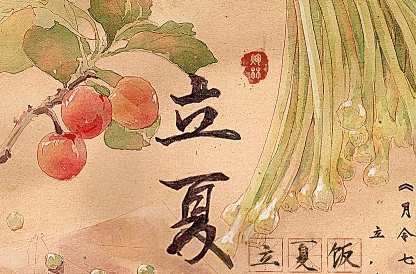 立夏
立夏饭
《月令七
立,